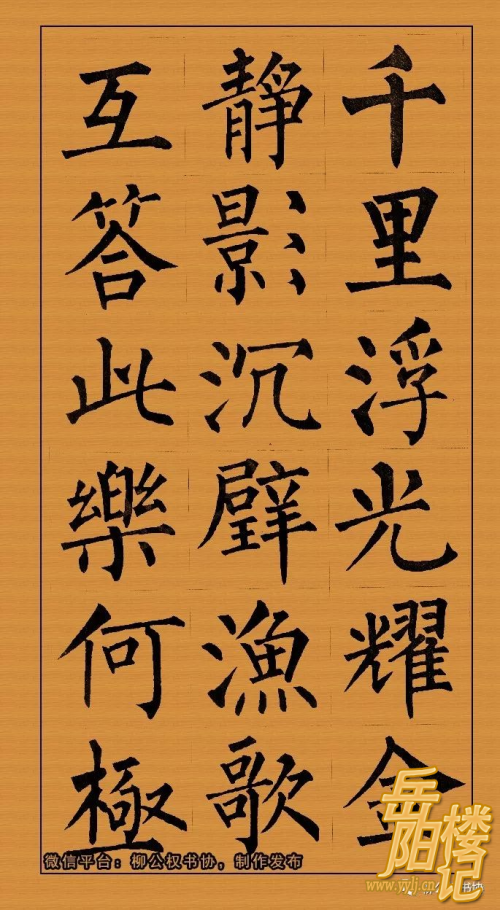 千里浮光耀金
靜影沉璧漁歌
互答此樂何極
微信平台：柳公权书协，制作发布
岳阳楼记
www.yylj.cn
书协